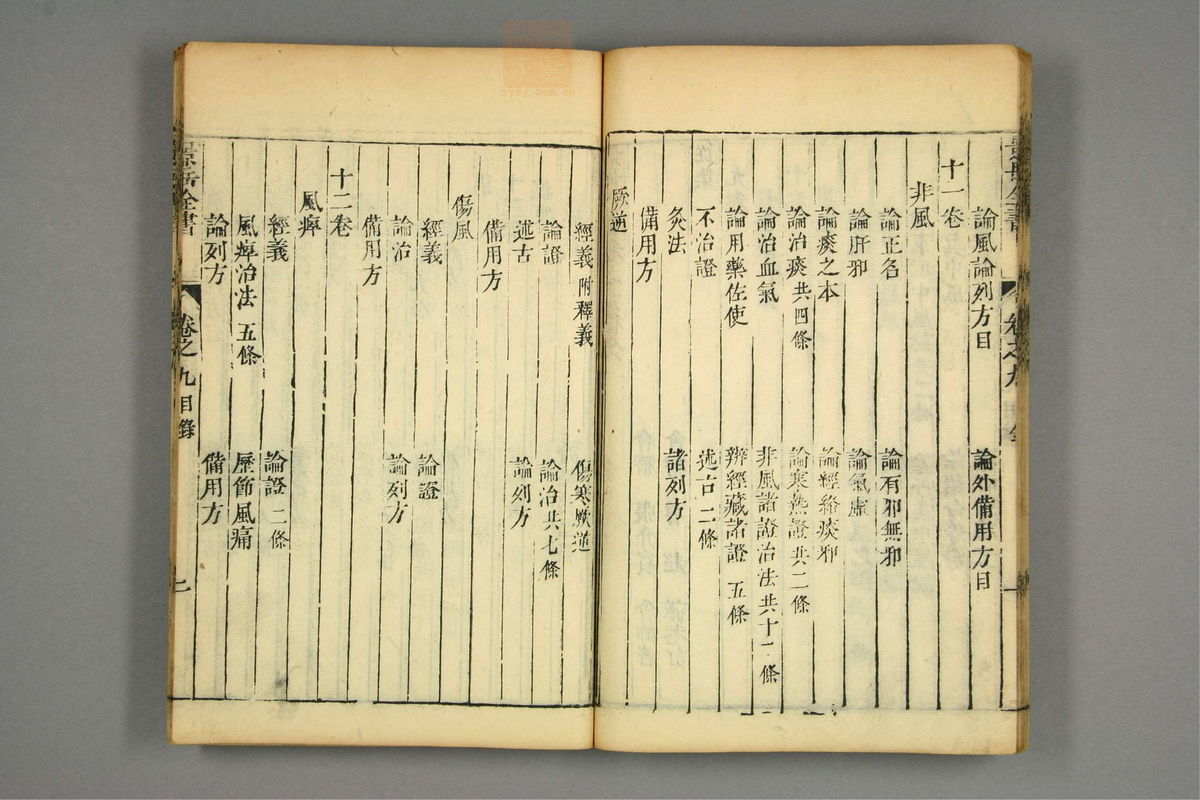 論風論列方目　論外備用方目
十一卷
非風
論正名　論有邪無邪
論肝邪　論氣虛
論痰之本　論經絡痰邪
論治痰共四條　論寒熱證共二條
論治血氣　非風諸證治法共十二條
論用藥佐使　辨經藏諸證 五條
不治證　述古 二條
灸法　諸列方
備用方
厥逆
景岳全書　卷之九目錄　一
經義 附釋義　傷寒厥逆
論證　論治共七條
述古　論列方
備用方
傷風
經義　論證
論治　論列方
備用方
十二卷
風痺
經義　論證 二條
風痺治法 五條　歷節風痛
論列方　備用方
景岳全書　卷之九目錄　二